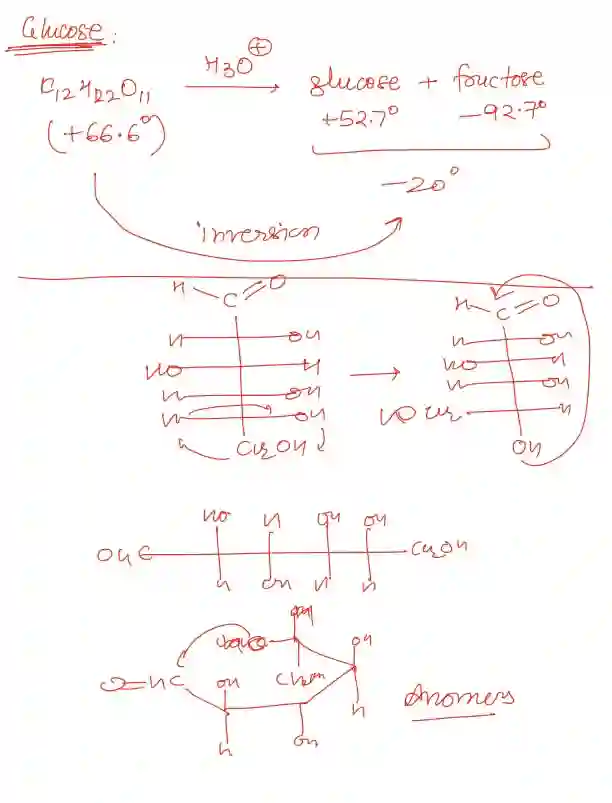 Glucose:
C12H22O11 H3O⊕ → glucose + fructose
(+66.6°) +52.7° -92.7°
-20°
inversion
H C O H C O
H OH H OH
HO H → HO H
H OH H OH
H OH HOCH2 H
CH2OH OH
HO H OH OH
OHC CH2OH
H OH H H
OH
O=HC OH CH2OH OH
H OH H
Anomers